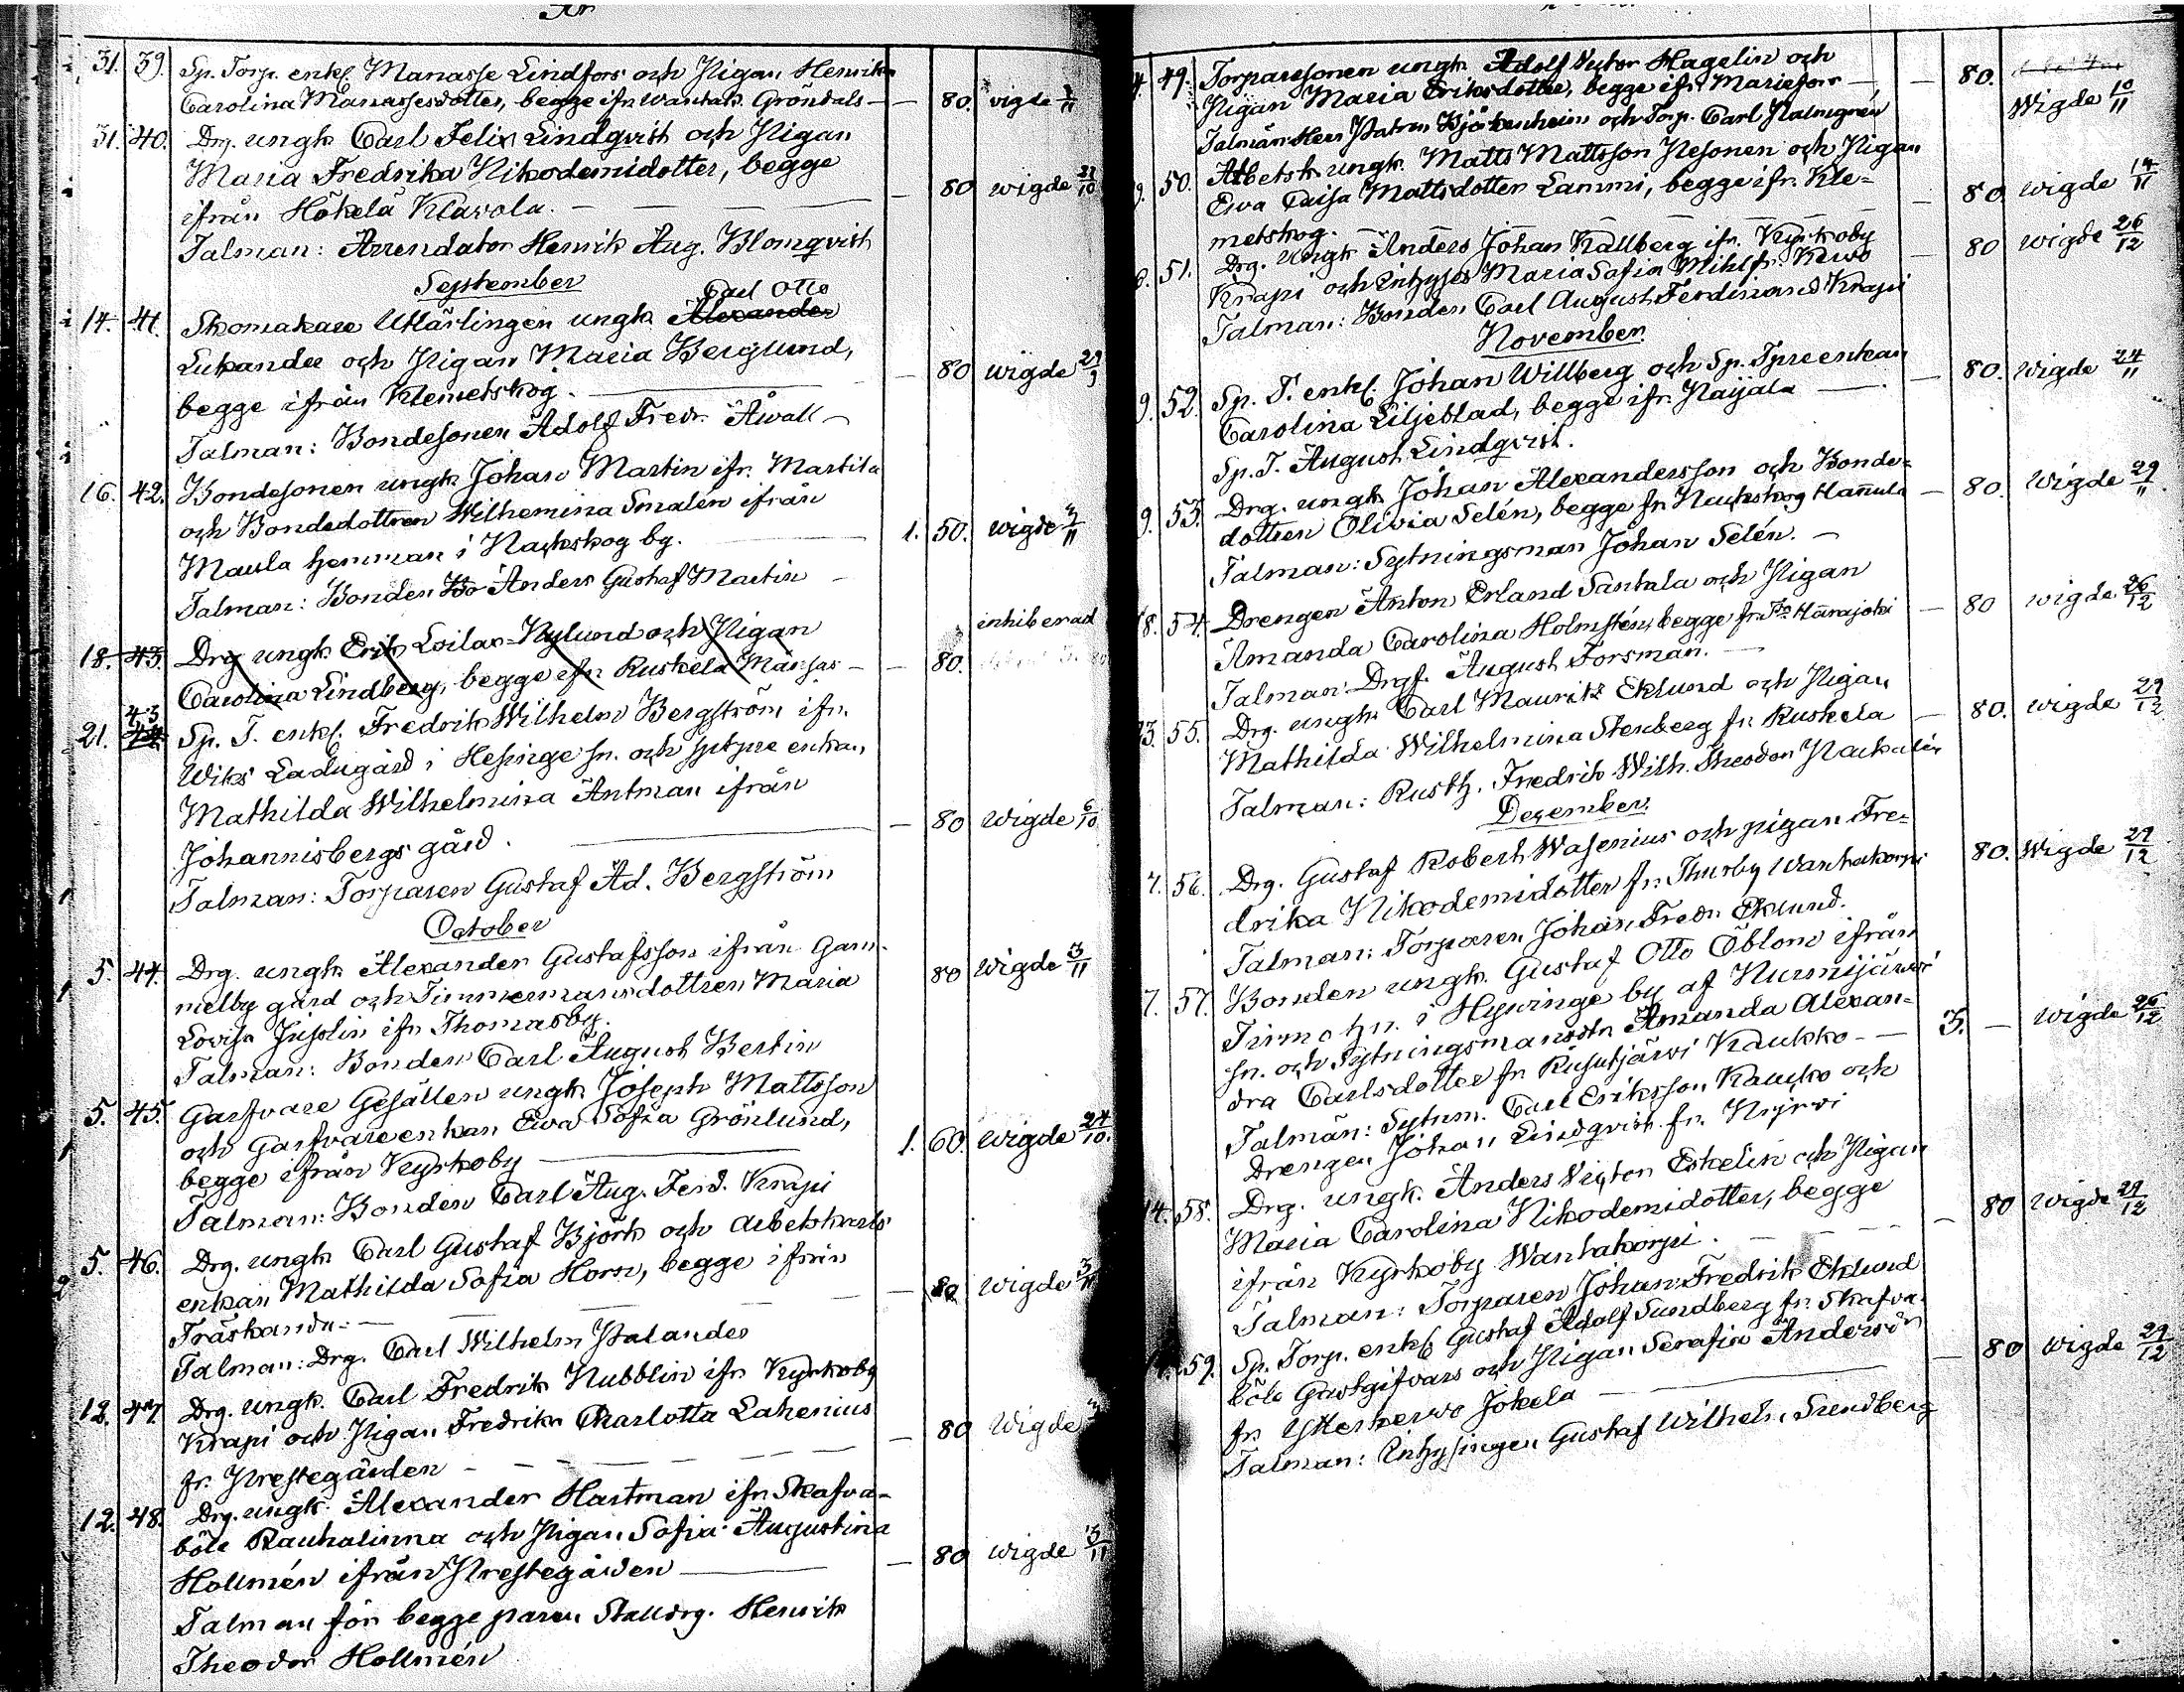 31. 39. Sp. Torp. enkl. Manasse Lindfors och Pigan Henrika
Carolina Manassesdotter, begge ifr. Wantak. Gröndals — — 80. vigde 3/11
31. 40. Drg. ungk. Carl Felix Lindqvist och Pigan
Maria Fredrika Nikodemidotter, begge
ifrån Hökelä Klavola. — — — — 80 wigde 27/10
Talman: Arrendator Henrik Aug. Blomqvist
September
Carl Otto
14. 41. Skomakare Utlärlingen ungk. Alexander
Lukander och Pigan Maria Berglund,
begge ifrån Klemetskog. — — 80 wigde 29/9
Talman: Bondesonen Adolf Fredr. Åwall —
16. 42. Bondesonen ungk. Johan Martin ifr. Martila
och Bondedottren Wilhemina Smalén ifrån
Maula hemman i Nackskog by. — 1. 50. wigde 3/11
Talman: Bonden Bo Anders Gustaf Martin —
inhiberad
18. 43. Drg ungk. Erik Loilas-Nylund och Pigan
Carolina Lindberg, begge ifr. Ruskela Mänsas — — 80.
43
21. 44. Sp. T. enkl. Fredrik Wilhelm Bergström ifr.
Wiks Ladugård i Helsinge sn. och sptpre enkan
Mathilda Wilhelmina Antman ifrån
Johannisbergs gård. — — 80 wigde 6/10
Talman: Torparen Gustaf Ad. Bergström
October
5. 44. Drg. ungk. Alexander Gustafsson ifrån Gam-
melby gård och Timmermansdottren Maria 80 wigde 3/11
Lovisa Juslin ifr. Thomasby.
Talman: Bonden Carl August Bertin
5. 45. Garfvare Gesällen ungk. Joseph Mattsson
och Garfvareenkan Ewa Sofia Grönlund,
begge ifrån Kyrkoby — 1. 60. wigde 24/10.
Talman: Bonden Carl Aug. Ferd. Krapi
5. 46. Drg. ungk. Carl Gustaf Björk och arbetskarls
enkan Mathilda Sofia Horn, begge ifrån
Träskanda. — — — — — 80 wigde 3/11
Talman: Drg. Carl Wilhelm Palander
12. 47. Drg. ungk. Carl Fredrik Nubblin ifr. Kyrkoby
Krapi och Pigan Fredrika Charlotta Lahenius
fr. Prestegården — — — — — 80 wigde
12. 48. Drg. ungk. Alexander Hartman ifr. Skafva-
böle Rauhalinna och Pigan Sofia Augustina
Hollmén ifrån Prestegården — — 80 wigde 3/11
Talman för begge paren Stalldrg. Henrik
Theodor Hollmén
4. 49. Torparesonen ungk. Adolf Victor Hagelin och
Pigan Maria Eriksdotter, begge ifr. Mariefors — — 80. Wigde 10/11
Talmän: Herr Patron Björkenheim och Torp. Carl Malmgren
9. 50. Arbetsk. ungk. Matts Mattsson Pesonen och Pigan
Ewa Caisa Mattsdotter Lammi, begge ifr. Kle-
metskog. — — — — — 80 wigde 14/11
6. 51. Drg. ungk. Anders Johan Källberg ifr. Kyrkoby
Krapi och Inhyses Maria Sofia Mihl fr. Kervo — 80 wigde 26/12
Talman: Bonden Carl August Ferdinand Krapi
November
9. 52. Sp. T. enkl. Johan Willberg och Sp. Tpreenkan
Carolina Liljeblad, begge ifr. Paijala — — 80. wigde 24/11
Sp. T. August Lindqvist.
9. 53. Drg. ungk. Johan Alexandersson och Bonde-
dottren Olivia Selén, begge fr. Nackskog Hannula — 80. wigde 29/11.
Talman: Sytningsman Johan Selén. —
18. 54. Drengen Anton Erland Santala och Pigan
Amanda Carolina Holmstén, begge fr. Harajoki — 80 wigde 26/12
Talman: Drg. August Forsman. —
23. 55. Drg. ungk. Carl Mauritz Eklund och Pigan
Mathilda Wilhelmina Stenberg fr. Ruskela — 80. wigde 29/12
Talman: Rusth. Fredrik Wilh. Theodor Nackalin
December
7. 56. Drg. Gustaf Robert Wasenius och pigan Fre-
drika Nikodemidotter fr. Thusby Wanhakorpi 80. Wigde 29/12
Talman: Torparen Johan Fredr. Eklund.
7. 57. Bonden ungk. Gustaf Otto Öblom ifrån
Tirmo hn. i Hyvinge by af Nurmijärvi
sn. och Sytningsmansdtr. Amanda Alexan-
dra Carlsdotter fr. Rusutjärvi Kaukko — — 3. — wigde 26/12
Talmän: Sytnm. Carl Eriksson Kaucko och
Drengen Johan Lindqvist fr.
14. 58. Drg. ungk. Anders Victor Eskelin och Pigan
Maria Carolina Nikodemidotter, begge
ifrån Kyrkoby Wanhakorpi. — — — — 80 wigde 29/12
Talman: Torparen Johan Fredrik Eklund
14. 59. Sp. Torp. enkl. Gustaf Adolf Sundberg fr. Skafva-
böle Gästgifvars och Pigan Serafia Andersson
fr. Ytterkervo Jokela — — 80 wigde 29/12
Talman: Inhysingen Gustaf Wilhelm Sundberg